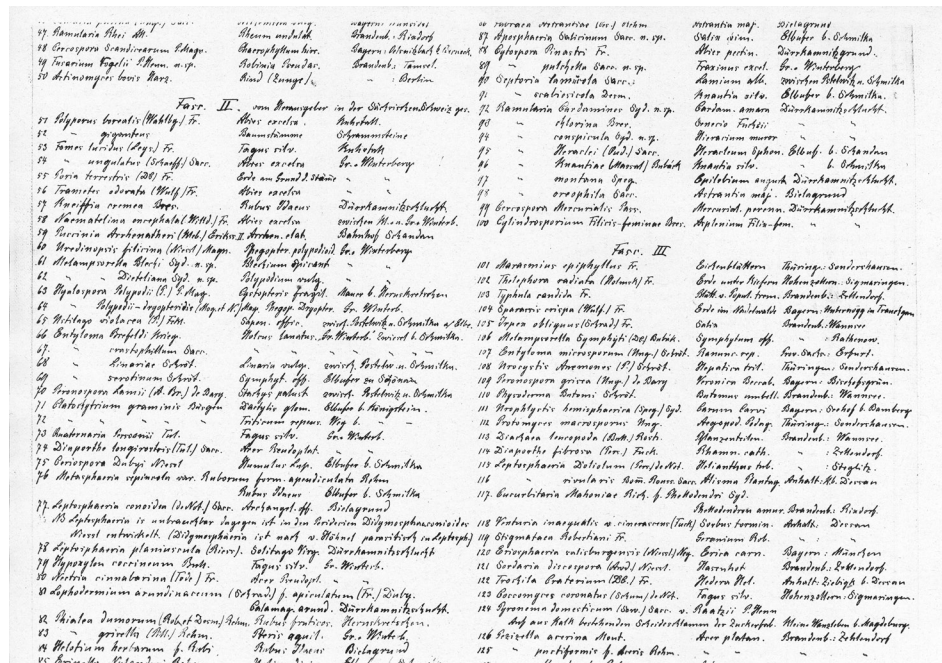 47. Ramularia Rhei All. Rheum undulat. Brandenb.: Rixdorf
48 Cercospora Scandicearum P. Magn. Chaerophyllum hirs. Bayern:
49 Fusarium Vogelii P. Henn. n. sp. Robinia Pseudac. Brandenb: Tamsel.
50 Actinomyces bovis Harz. Rind (Zunge). " : Berlin
Fasc. II. vom Herausgeber in der Sächsischen Schweiz ges.
51 Polyporus borealis (Wahlbg.) Fr. Abies excelsa. Kuhstall.
52 " giganteus Baumstämme Schrammsteine
53 Fomes lucidus (Leys.) Fr. Fagus silv. Kuhstall
54 " ungulatus (Schaeff.) Sacc. Abies excelsa Gr. Winterberg
55 Poria terrestris (DC) Fr. Erde am Grund d. Stäme " "
56 Trametes odorata (Wulf.) Fr. Abies excelsa " "
57 Kneiffia cremea Bres. Rubus Idaeus Dürrkamnitzschlucht
58 Naematelina encephal. (Willd.) Fr. Abies excelsa zwischen Kl. u. Gr. Winterb.
59 Puccinia Arrhenatheri (Kleb.) Erikss. Arrhen. elat. Bahnhof Schandau
60 Uredinopsis filicina (Niessl.) Magn. Phegopter. polypodioid. Gr. Winterberg
61 Melampsorella Blechi Syd. n. sp. Blechum spicant " "
62 " Dieteliana Syd. n. sp. Polypodium vulg. " "
63 Hyalospora Polypodii (P.) P. Mag. Cystopteris fragil. Mauer b. Herrnskretschen
64 " Polypodii-dryopteridis (Moug. et N.) Mag. Phegop. Dryopter. Gr. Winterb.
65 Ustilago violacea (P.) Fckl. Sapon. offic. zwisch. Postelwitz u. Schmilka a/ Elbe.
66 Entyloma Brefeldi Krieg. Holcus lanatus. Gr. Winterb.
67 " crastophyllum Sacc. " " " "
68 " Linariae Schröt. Linaria vulg. zwisch. Postelw. u. Schmilka.
69 " serotinum Schröt. Symphyt. off. Elbufer zu Schönau
70 Peronospora Lamii (A. Br.) de Bary. Stachys palust zwisch. Postelwitz u. Schmilka.
71 Cladochytrium graminis Büsgen Dactylis glom. Elbufer b. Königstein.
72 " " " Triticum repens. Weg b. "
73 Quaternaria Persoonii Tul. Fagus silv. Gr. Winterb.
74 Diaporthe longirostris (Tul.) Sacc. Acer Pseudoplat. "
75 Ceriospora Dubyi Niessl Humulus Lup. Elbufer b. Schmilka
76 Metasphaeria sepincola var. Ruborum form. apendiculata Rehm
Rubus Idaeus Elbufer b. Schmilka
77. Leptosphaeria conoidea (de Not.) Sacc. Archangel. off. Bielagrund
NB Leptosphaeria is unbrauchbar dagegen ist in den Perithecien Didymosphaeria conioides
Niessl entwickelt. (Didymosphaeria ist nach v. Höhnel parasitisch in Leptosph.)
78 Leptosphaeria planiuscula (Riess). Solidago Virg. Dürrkamnitzschlucht
79 Hypoxylon coccineum Bull. Fagus silv. Gr. Winterb.
80 Nectria cinnabarina (Tode) Fr. Acer Pseudopl. " "
81 Lophodermium arundinaceum (Schrad.) f. apiculatum (Fr.) Duby.
Calamag. arund. Dürrkamnitzschucht.
82 Phialea dumorum (Rob. et Desm.) Rehm. Rubus fruticos. Herrnskretschen.
83 " grisella (Roll.) Rehm. Pteris aquil. Gr. Winterb.
84 Helotium herbarum f. Rubi. Rubus Idaeus Bielagrund
87 Aposphaeria Salicinum Sacc. n. sp. Salix vim. Elbufer b. Schmilka
88 Cytospora Pinastri Fr. Abies pectin. Dürrkamnitzgrund.
89 " pulchella Sacc. n. sp. Fraxinus excel. Gr. Winterberg
90 Septoria lamiicola Sacc. Lamium alb. zwischen Postelwitz u. Schmilka
91 " scabiosicola Desm. Knautia silv. Elbufer b. Schmilka.
92 Ramularia Cardamines Syd. n. sp. Cardam. amara Dürrkamnitzschlucht.
93 " chlorina Bres. Senecio Fuchsii "
94 " conspicula Syd. n. sp. Hieracium muror "
95 " Heraclei (Oud.) Sacc. Heracleum Sphon. Elbuf. b. Schandau
96 " Knautiae (Massal.) Bubák Knautia silv. " b. Schmilka
97 " montana Speg. Epilobium angust. Dürrkamnitzschlucht.
98 " oreophila Sacc. Astrantia maj. Bielagrund
99 Cercospora Mercurialis Pass. Mercurial. perenn. Dürrkamnitzschlucht.
100 Cylindrosporium Filicis-feminae Bres. Asplenium Filix-fem. " "
Fasc. III
101 Marasmius epiphyllus Fr. Eichenblättern Thüring.: Sondershausen.
102 Thelephora radiata (Holmsk) Fr. Erde unter Kiefern Hohenzollern: Sigmaringen.
103 Typhula candida Fr. Blätt. v. Popul. trem. Brandenb.: Zehlendorf.
104 Sparassis crispa (Wulf.) Fr. Erde im Nadelwald Bayern:
105 Irpex obliquus (Schrad) Fr. Salix Brandenb: Wannsee
106 Melampsorella Symphyti (DC) Bubák. Symphytum off. " : Rathenow.
107 Entyloma microsporum (Ung.) Schröt. Ranunc. rep. Prov. Sachs.: Erfurt.
108 Urocystis Anemones (P.) Schröt. Hepatica tril. Thüring: Sondershausen.
109 Peronospora grisea (Ung.) de Bary Veronica Beccab. Bayern: Bischofsgrün.
110 Physoderma Butomi Schröt. Butomus umbell. Brandenb: Wannsee.
111 Urophlyctis hemisphaerica (Speg.) Syd. Carum Carvi Bayern: Seehof b. Bamberg
112 Protomyces macrosporus Ung. Aegopod. Podag. Thüring: Sondershausen.
113 Diachaea leucopoda (Bull.) Rost. Pflanzenteilen. Brandenb: Wannsee.
114 Diaporthe fibrosa (Pers.) Fuck. Rhamn. cath. " : Zehlendorf.
115 Leptosphaeria Doliolum (Pers.) de Not. Helianthus tub. " : Steglitz.
116 " rivularis Bom. Rouss. Sacc. Alisma Plantag. Anhalt: Kl. Dessau
117. Cucurbitaria Mahoniae Rich. f. Phellodendri Syd.
Phellodendron amur. Brandenb: Rixdorf.
118 Venturia inaequalis v. cinerascens (Fuck) Sorbus tormin. Anhalt: Dessau
119 Stigmatea Robertiani Fr. Geranium Rob. " : "
120 Eriosphaeria salisburgensis (Niessl) Erica carn. Bayern: München
121 Sordaria discospora (Awd.) Niessl. Hasenkot Brandenb: Zehlendorf.
122 Trochila Craterium (DC.) Fr. Hedera Hel. Anhalt: Ziebigk b. Dessau
123 Coccomyces coronatus (Schum.) de Not. Fagus silv. Hohenzollern: Sigmaringen.
124 Pyronema domesticum (Sow.) Sacc. v. Raatzii P. Henn
Auf aus Kalk bestehenden Scheideschlamm der Zuckerfab. Klein Wanzleben b. Magdeburg.
126 Pezizella acerina Mont. Acer platan. Brandenb: Zehlendorf
125 " punctiformis f. Aceris Rehm. " "